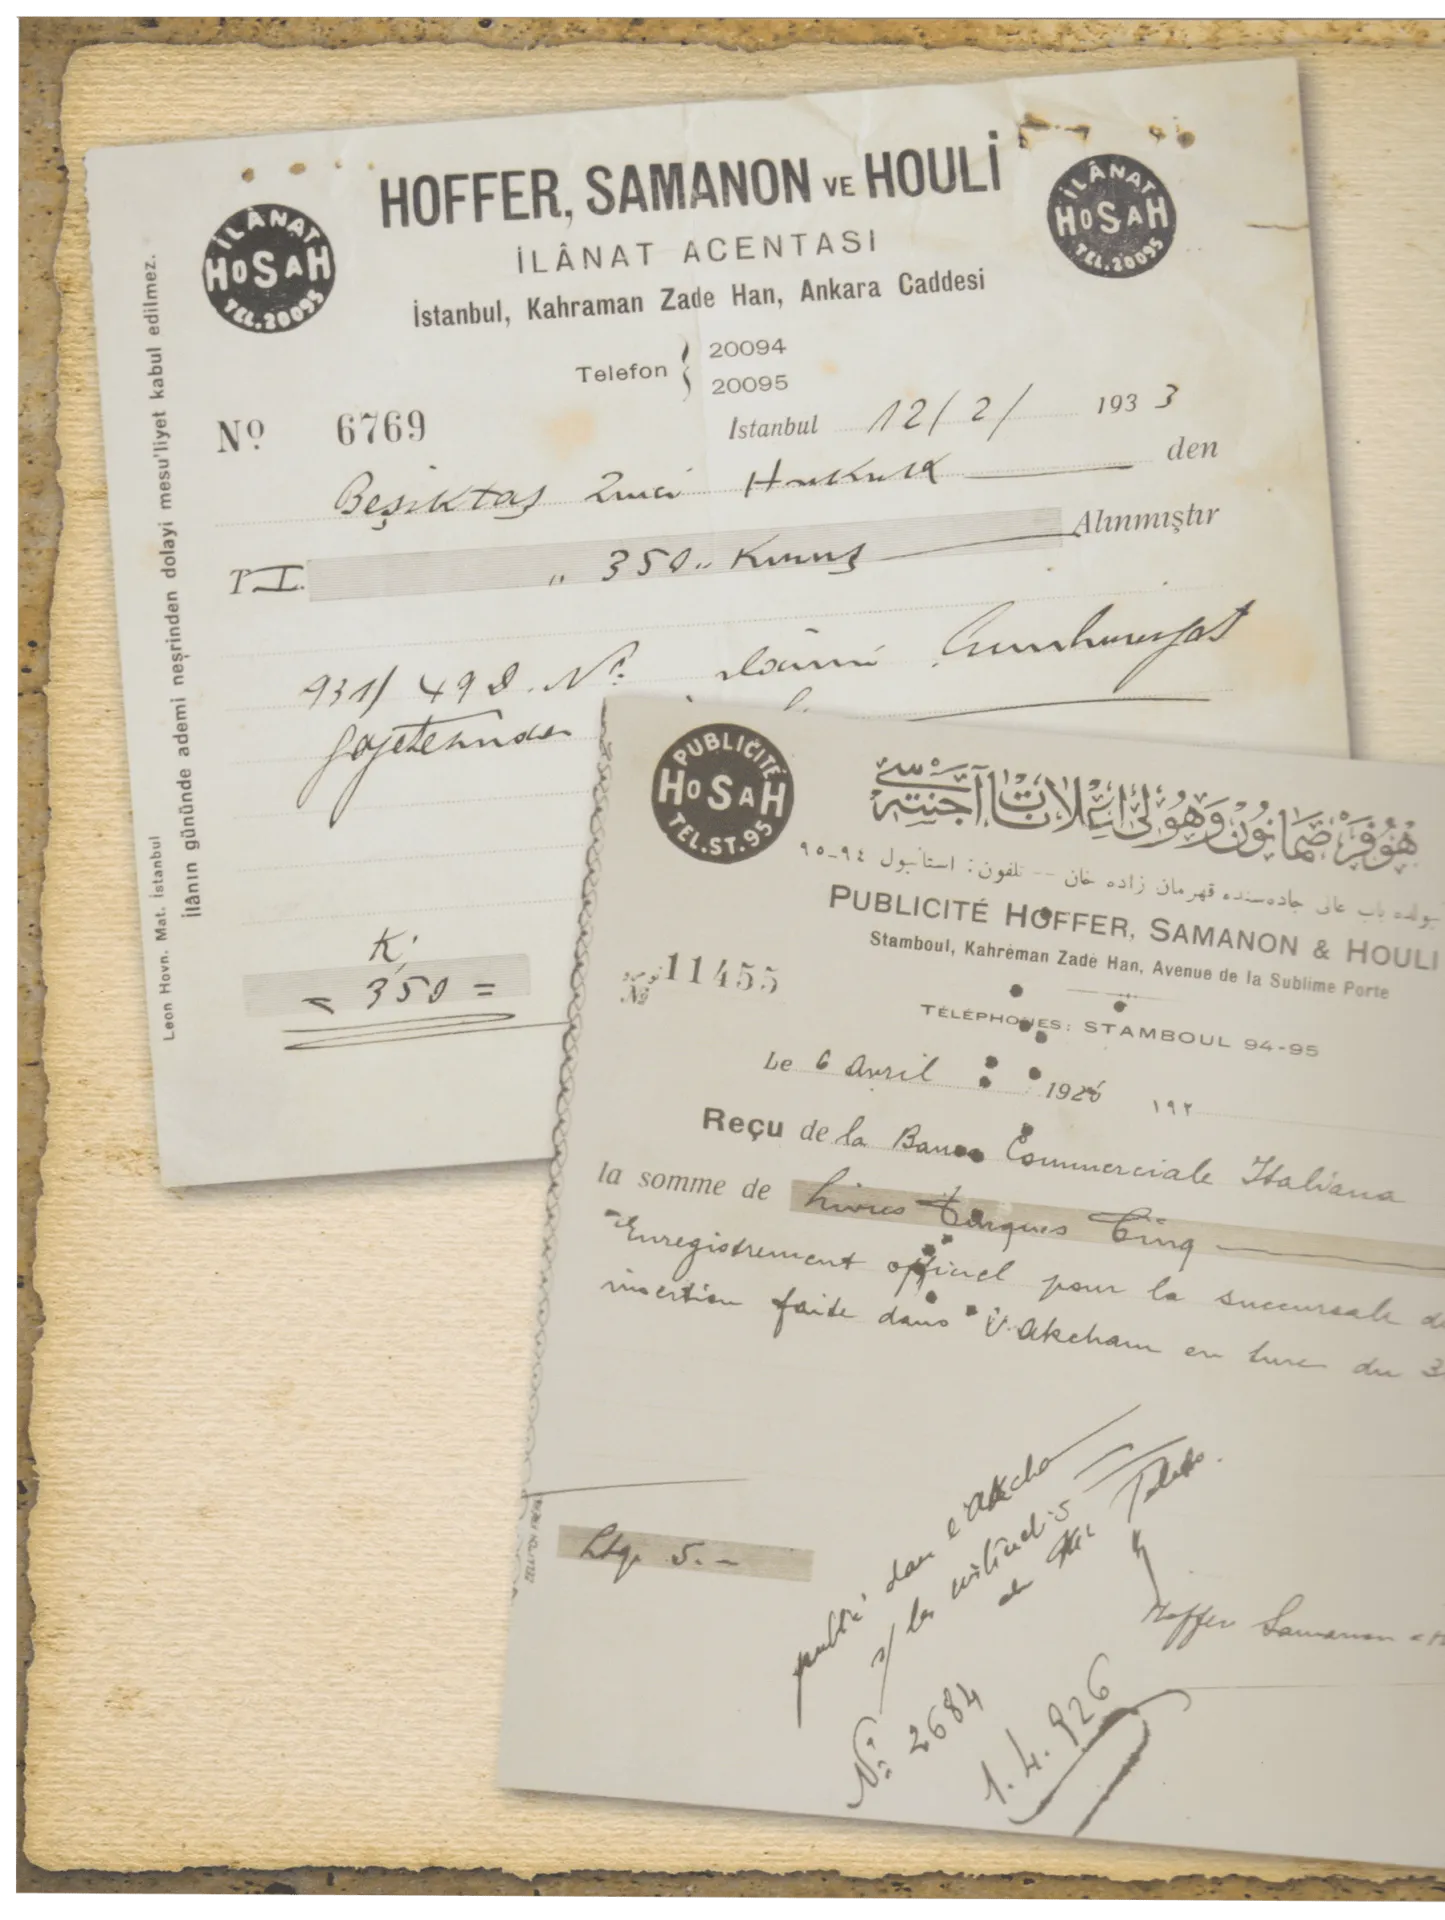 HOFFER, SAMANON VE HOULİ
İLÂNAT HOSAH TEL.20095
İLÂNAT HOSAH TEL.20095
İLÂNAT ACENTASI
İstanbul, Kahraman Zade Han, Ankara Caddesi
Telefon 20094
20095
Nº 6769
Istanbul 12/2/ 1933
Beşiktaş 2inci Hukuk den
350 Kuruş Alınmıştır
931/498 Nº ilânın Cumhuriyet
gazetesinde
K.
350 =
İlânın gününde ademi neşrinden dolayi mesu'liyet kabul edilmez.
Leon Hovn. Mat. İstanbul
PUBLICITÉ HOSAH TEL.ST.95
هوفر صمانون وهولی اعلانات آجنته سی
باب عالی جاده سنده قهرمان زاده خان -- تلفون : استانبول ٩٤-٩٥
PUBLICITÉ HOFFER, SAMANON & HOULI
Stamboul, Kahréman Zadé Han, Avenue de la Sublime Porte
نومرو
Nº 11455
TÉLÉPHONES: STAMBOUL 94-95
Le 6 Avril 1926 ١٩٢
Reçu de la Banca Commerciale Italiana
la somme de Livres Turques Cinq
Enregistrement officiel pour la succursale
insertion faite dans l'Akcham en turc du
Ltq. 5.-
publié dans l'Akcham
Nº 2684
1.4.926
Hoffer Samanon